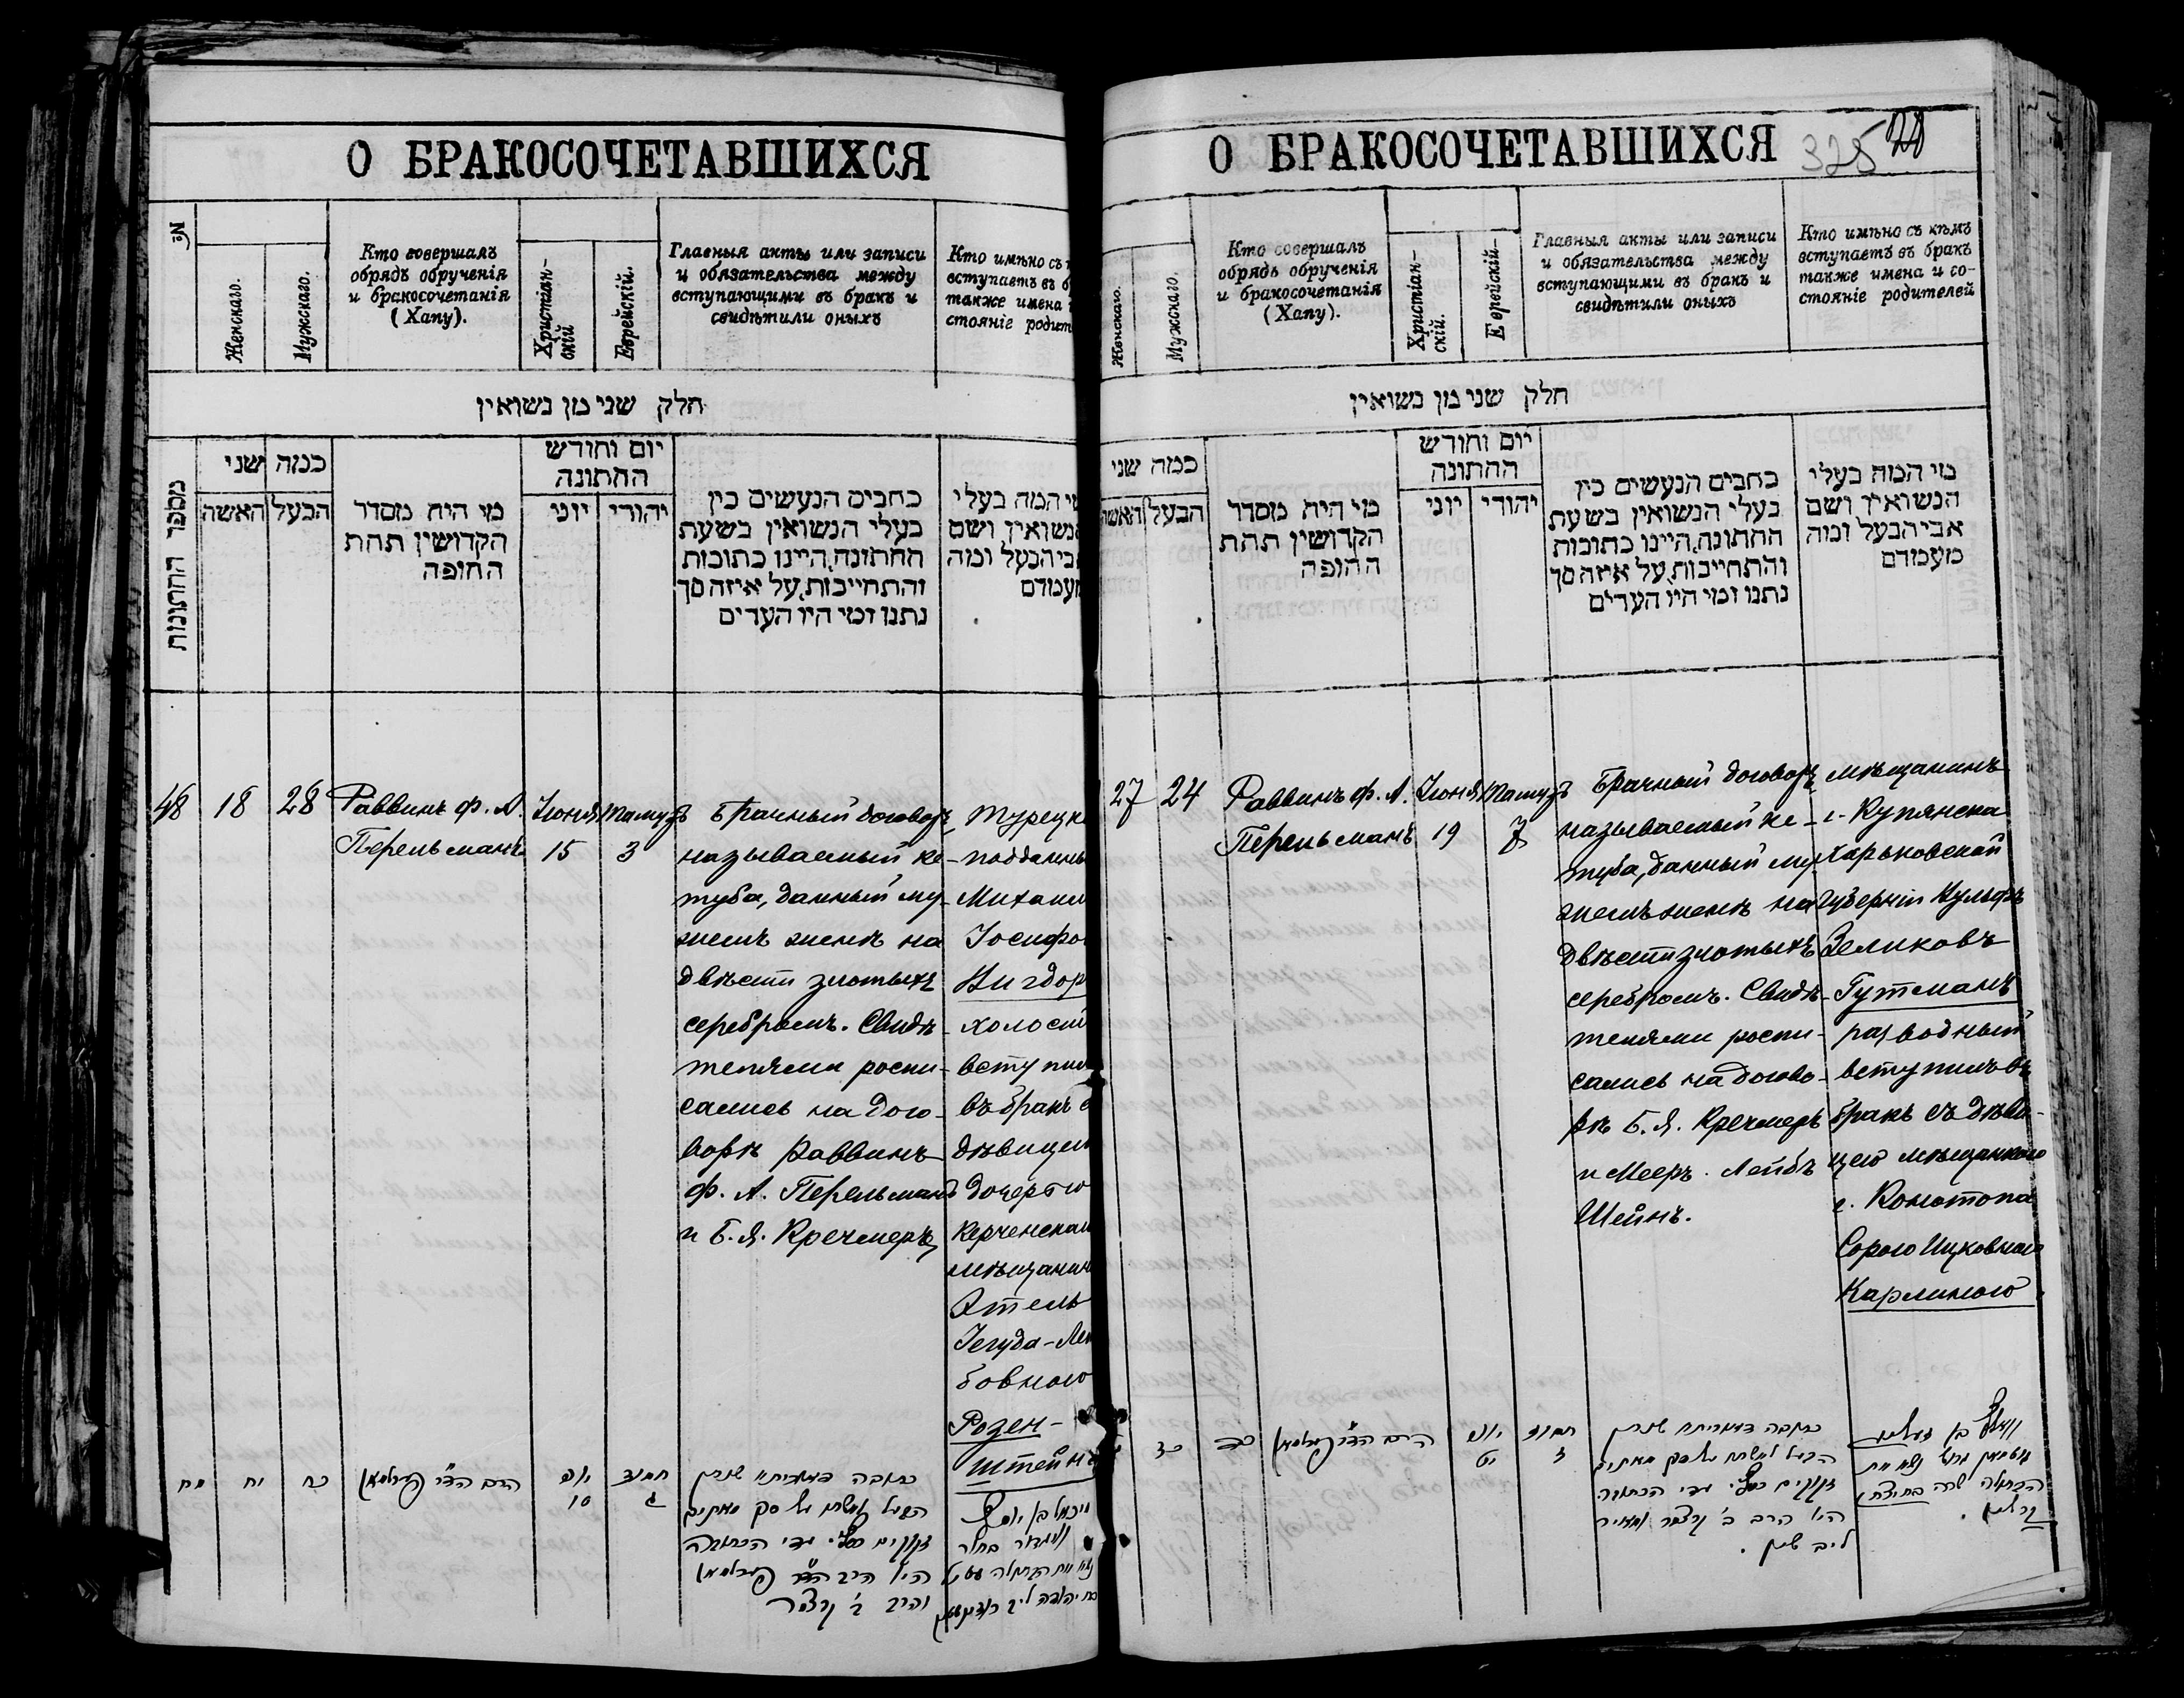 О БРАКОСОЧЕТАВШИХСЯ
№
Женскаго.
Мужскаго.
Кто совершалъ
обрядъ обрученія
и бракосочетанія
(Хапу).
Христіан-
скій
Еврейскій.
Главныя акты или записи
и обязательства между
вступающими въ бракъ и
свидѣтили оныхъ
Кто имѣно съ
вступаетъ въ б
также имена
стояніе родит
חלק שני מן נשואין
מספר החתונות
כמה שני
האשה
הבעל
מי היה מסדר
הקדושין תחת
החופה
יום וחודש
החתונה
יוני
יהודי
כתבים הנעשים בין
בעלי הנשואין בשעת
החתונה, היינו כתובות
והתחייבות, על איזה סך
נתנו ומי היו העדים
מי המה בעלי
הנשואין ושם
אבי הבעל ומה
מעמדם
48
18
28
Раввинъ Ф. А.
Перельманъ
Іюня
15
Тамузъ
3
Брачный договоръ,
называемый ке-
туба, данный му-
жемъ женѣ на
двѣсти злотыхъ
серебромъ. Свидѣ-
телями роспи-
сались на дого-
ворѣ Раввинъ
Ф. А. Перельманъ
и Б. Я. Кречмеръ
Турецк
подданны
Михаил
Іосифо
Вигдор
холост
вступил
въ бракъ с
дѣвицею
дочерью
Керченскаго
мѣщанин
Этель
Іегуда-Лей
бовною
Розен-
штейнъ
מח
יח
כח
הרב הד״ר פערלמאן
יוני
15
תמוז
ג
כתובה דאורייתא שנתן
הבעל לאשתו על סך מאתים
זקוקים כסף. עדי הכתובה
היו הרב הד״ר פערלמאן
והרב ב׳ קרצמר
מיכאל בן יוסף
וויגדור בחור
נשא את הבתולה עטיל
בת יהודה ליב ראזענשטיין
О БРАКОСОЧЕТАВШИХСЯ
325
Женскаго.
Мужскаго.
Кто совершалъ
обрядъ обрученія
и бракосочетанія
(Хапу).
Христіан-
скій.
Е рейскій-
Главныя акты или записи
и обязательства между
вступающими въ бракъ и
свидѣтили оныхъ
Кто имѣно съ кѣмъ
вступаетъ въ бракъ
также имена и со-
стояніе родителей
חלק שני מן נשואין
כמה שני
האשה
הבעל
מי היה מסדר
הקדושין תחת
החופה
יום וחודש
החתונה
יוני
יהודי
כתבים הנעשים בין
בעלי הנשואין בשעת
החתונה, היינו כתובות
והתחייבות, על איזה סך
נתנו ומי היו העדים
מי המה בעלי
הנשואין ושם
אבי הבעל ומה
מעמדם
27
24
Раввинъ Ф. А.
Перельманъ
Іюня
19
Тамузъ
7
Брачный договоръ,
называемый ке-
туба, данный му-
жемъ женѣ на
двѣсти злотыхъ
серебромъ. Свидѣ-
телями роспи-
сались на догово-
рѣ Б. Я. Кречмеръ
и Мееръ-Лейбъ
Шейнъ.
мѣщанинъ
г. Купянска
Харьковской
губерніи Вульфъ
Зеликовъ
Гутманъ
разводный
вступилъ въ
бракъ съ дѣви-
цею мѣщанкою
г. Конотопа
Сорою Ицковною
Карлиною
כד
הרב הד״ר פערלמאן
יוני
יט
תמוז
ז
כתובה דאורייתא שנתן
הבעל לאשתו על סך מאתים
זקוקים כסף. עדי הכתובה
היו הרב ב׳ קרצמר ומאיר
ליב שיין.
וואלף בן זעליג
גוטמאן גרוש נשא את
הבתולה שרה בת יצחק
קרלין.